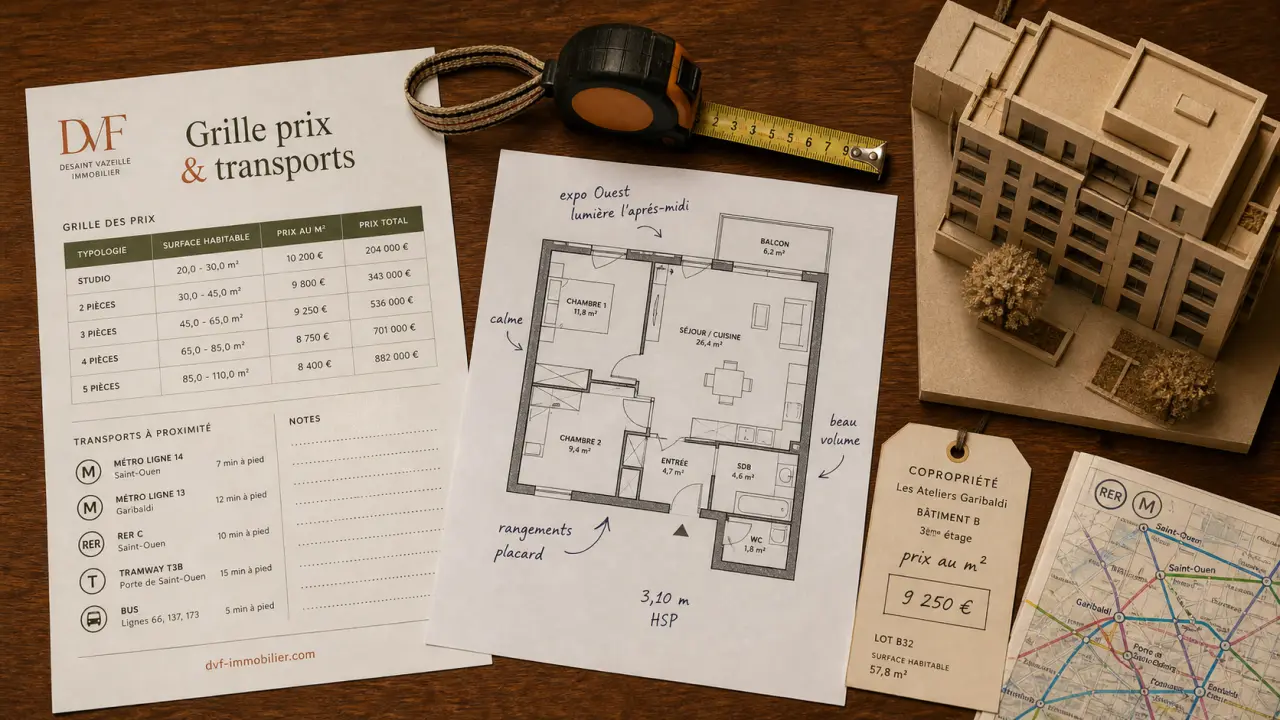 DVF
DESAINT VAZEILLE
IMMOBILIER
Grille prix
& transports
GRILLE DES PRIX
TYPOLOGIE SURFACE HABITABLE PRIX AU M² PRIX TOTAL
STUDIO 20,0 - 30,0 m² 10 200 € 204 000 €
2 PIÈCES 30,0 - 45,0 m² 9 800 € 343 000 €
3 PIÈCES 45,0 - 65,0 m² 9 250 € 536 000 €
4 PIÈCES 65,0 - 85,0 m² 8 750 € 701 000 €
5 PIÈCES 85,0 - 110,0 m² 8 400 € 882 000 €
TRANSPORTS À PROXIMITÉ
M MÉTRO LIGNE 14 7 min à pied
Saint-Ouen
M MÉTRO LIGNE 13 12 min à pied
Garibaldi
RER RER C 10 min à pied
Saint-Ouen
T TRAMWAY T3B 15 min à pied
Porte de Saint-Ouen
BUS 5 min à pied
Lignes 66, 137, 173
NOTES
dvf-immobilier.com
2 3 3 5 6 7 9
expo Ouest
lumière l'aprés-midi
BALCON
6,2 m²
CHAMBRE 1
11,8 m²
calme
SÉJOUR / CUISINE
26,4 m²
CHAMBRE 2
9,4 m²
ENTRÉE
4,7 m²
SDB
4,6 m²
beau
volume
WC
1,8 m²
rangements
placard
3,10 m
HSP
COPROPRIÉTÉ
Les Ateliers Garibaldi
BÂTIMENT B
3ème étage
prix au m²
9 250 €
LOT B32
SURFACE HABITABLE
57,8 m²
RER M
Saint-Ouen
Saint-Ouen
Garibaldi